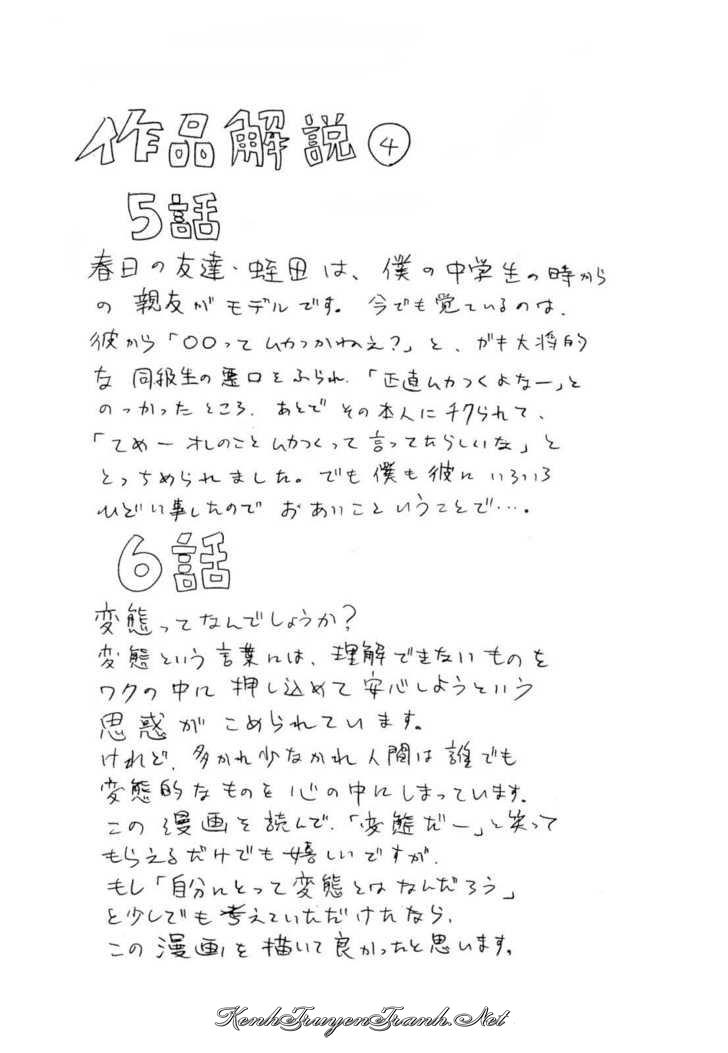 作品解説④
5話
春日の友達・蛭田は、僕の中学生の時から
の親友がモデルです。今でも覚ているのは、
彼から「〇〇ってムカつかねえ?」と、ガキ大将的
な同級生の悪口をふられ、「正直ムカつくよなー」と
のっかったところ、あとでその本人にチクられて、
「てめーオレのことムカつくって言ってたらしいな」と
とっちめられました。でも僕も彼にいろいろ
ひどい事したのでおあいこということで…。
6話
変態ってなんでしょうか?
変態という言葉には、理解できないものを
ワクの中に押し込めて安心しようという
思惑がこめられています。
けれど、多かれ少なかれ人間は誰でも
変態的なものを心の中にしまっています。
この漫画を読んで、「変態だー」と笑って
もらえるだけでも嬉しいですが、
もし「自分にとって変態とはなんだろう」
と少しでも考えていただけたなら、
この漫画を描いて良かったと思います。
KenhTruyenTranh.Net